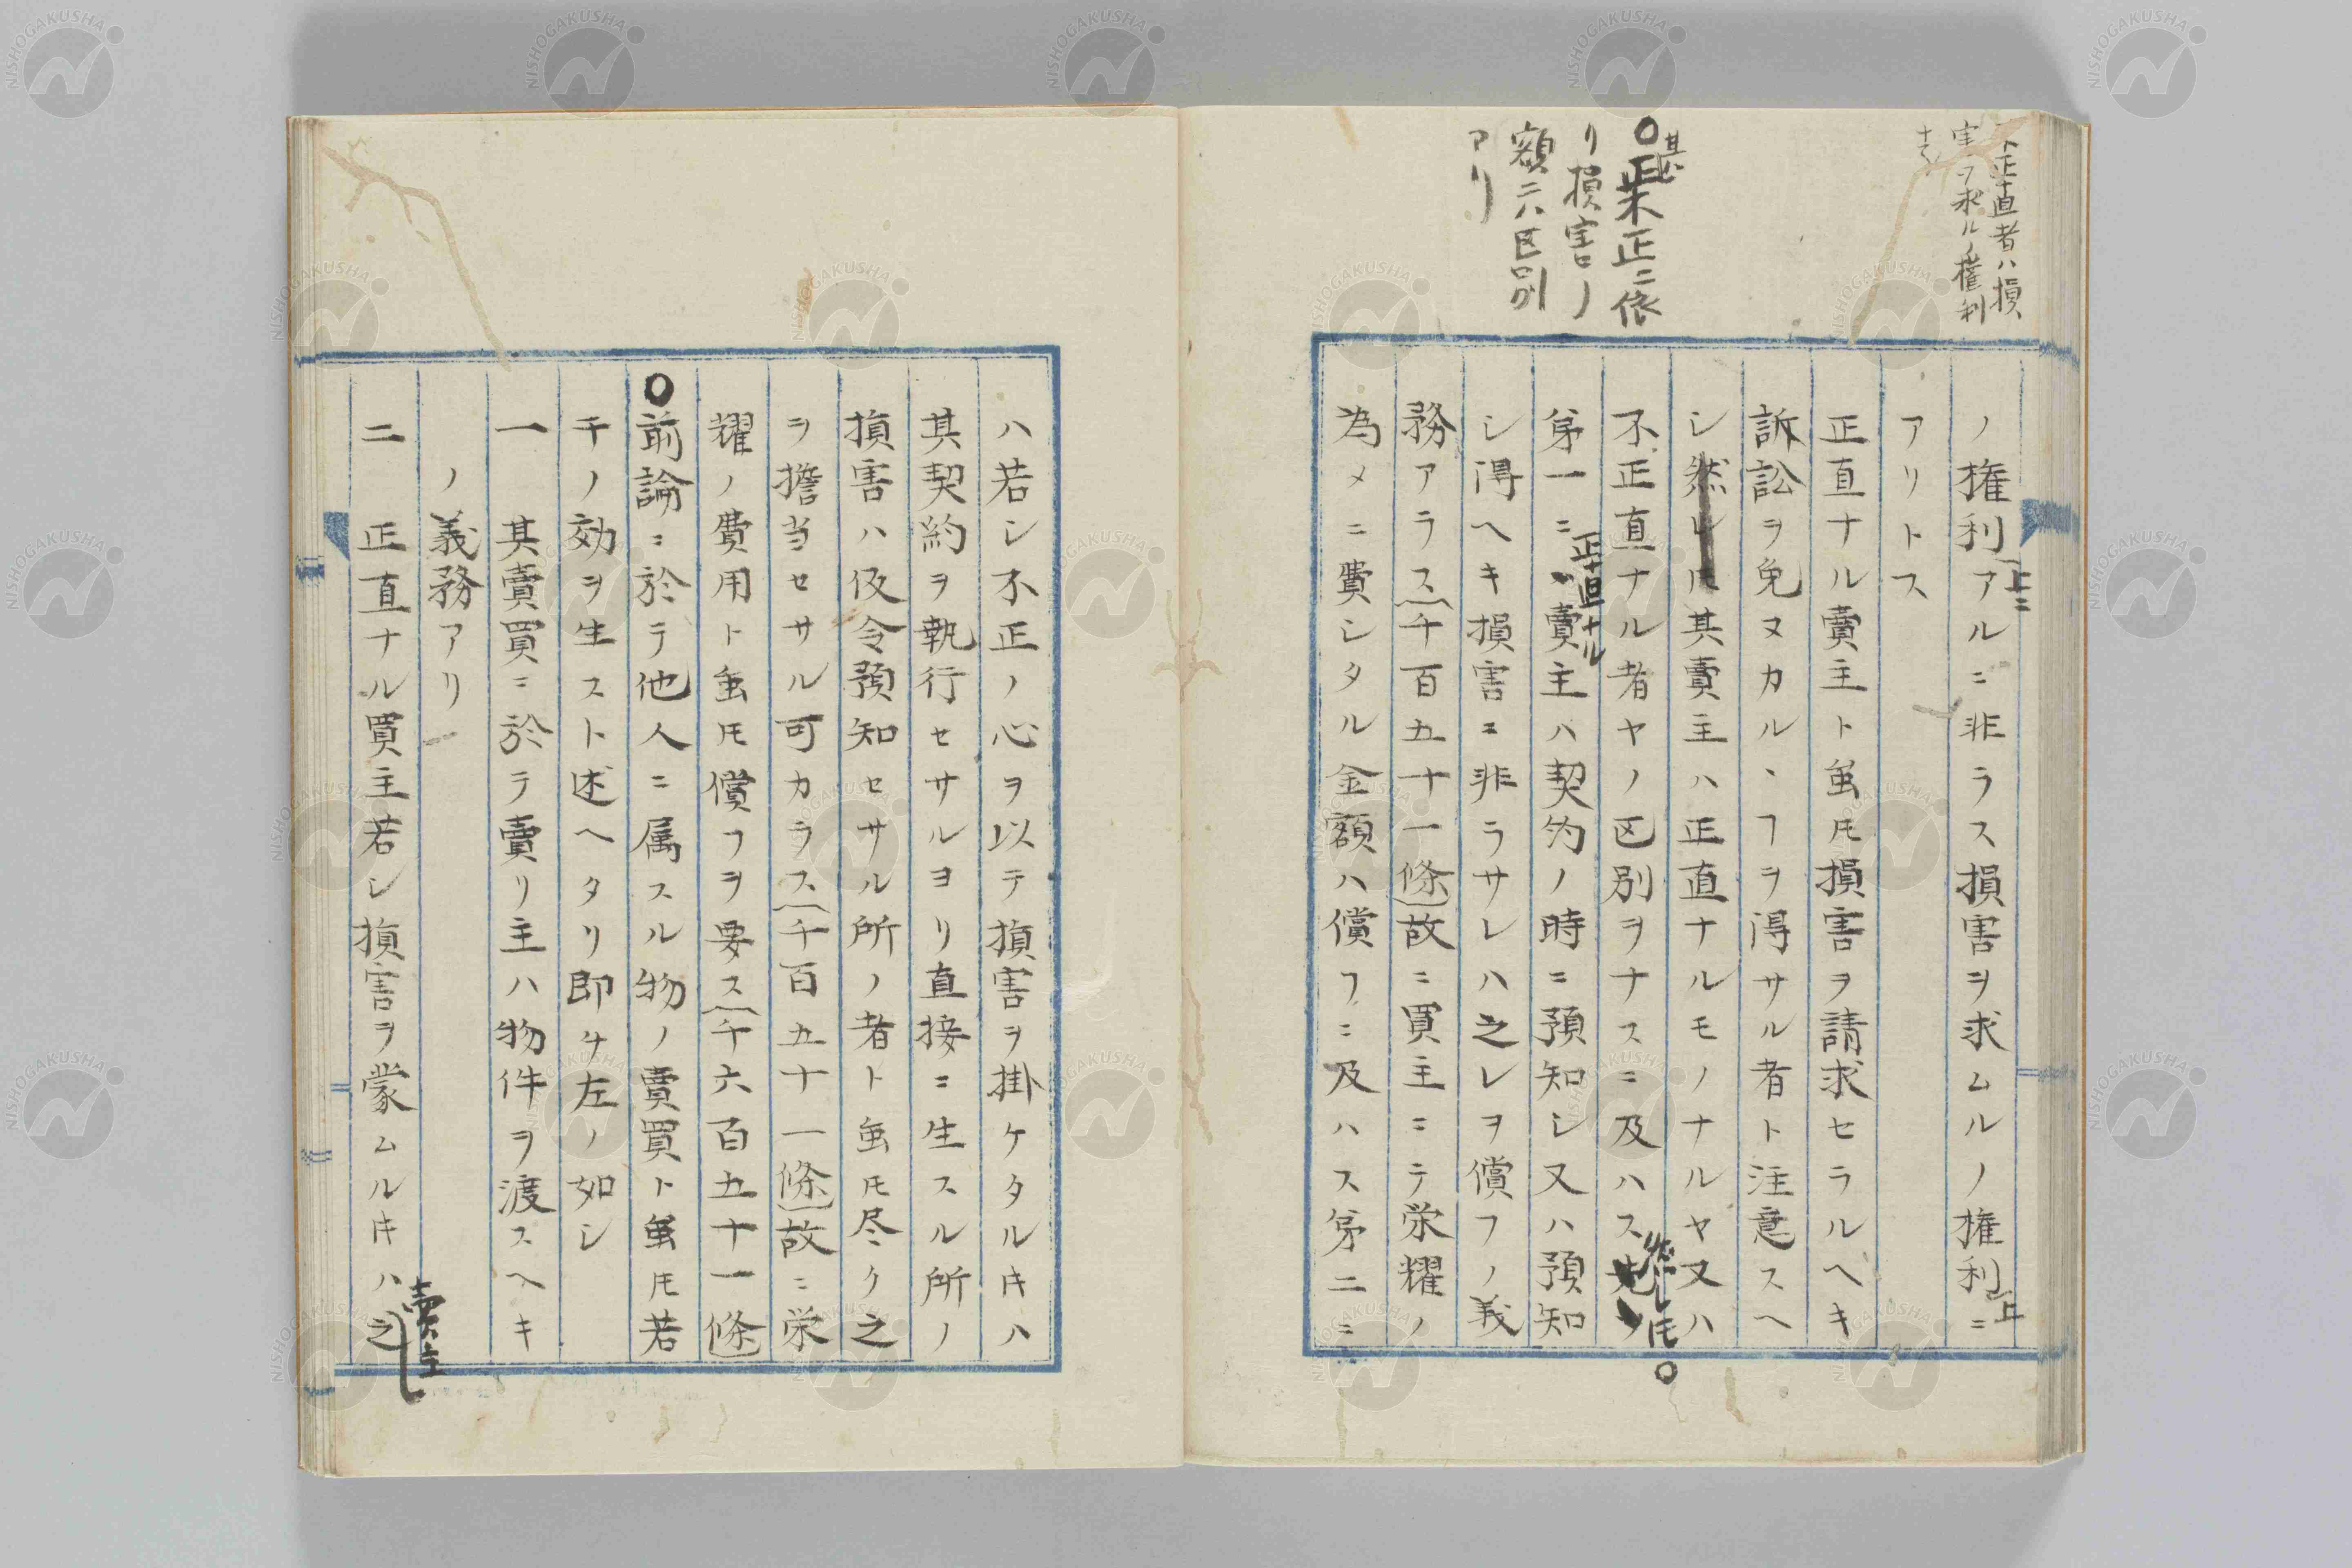 不正直者ハ損
害ヲ求ルノ権利
ナシ
○甚正不正ニ依
リ損害ノ
額ニハ区別
アリ
ノ権利アルニ非ラス損害ヲ求ムルノ権利ニ
上ニ
上
アリトス
正直ナル賣主ト雖𪜈損害ヲ請求セラルヘキ
訴訟ヲ免ヌカルヽヿヲ得サル者ト注意スヘ
シ然レ𪜈其賣主ハ正直ナルモノナルヤ又ハ
不正直ナル者ヤノ区別ヲナスニ及ハス
然レ𪜈○
第一ニ賣主ハ契約ノ時ニ預知シ又ハ預知
正直ナル
シ得ヘキ損害ニ非ラサレハ之レヲ償フノ義
務アラス(千百五十一條)故ニ買主ニテ栄耀ノ
為メニ費シタル金額ハ償フニ及ハス第二ニ
ハ若シ不正ノ心ヲ以テ損害ヲ掛ケタルキハ
其契約ヲ執行セサルヨリ直接ニ生スル所ノ
損害ハ仮令預知セサル所ノ者ト雖𪜈尽ク之
ヲ擔当セサル可カラス(千百五十一條)故ニ栄
耀ノ費用ト雖𪜈償フヲ要ス(千六百五十一條)
○前論ニ於テ他人ニ属スル物ノ賣買ト雖𪜈若
干ノ効ヲ生スト述ヘタリ即チ左ノ如シ
一 其賣買ニ於テ賣リ主ハ物件ヲ渡スヘキ
ノ義務アリ
二 正直ナル買主若シ損害ヲ蒙ムルキハ之
賣主
NISHOGAKUSHA